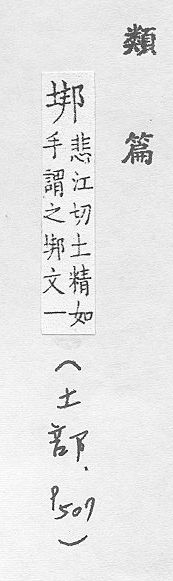 類篇
垹
悲江切土精如
手謂之垹文一
(土部. P507)